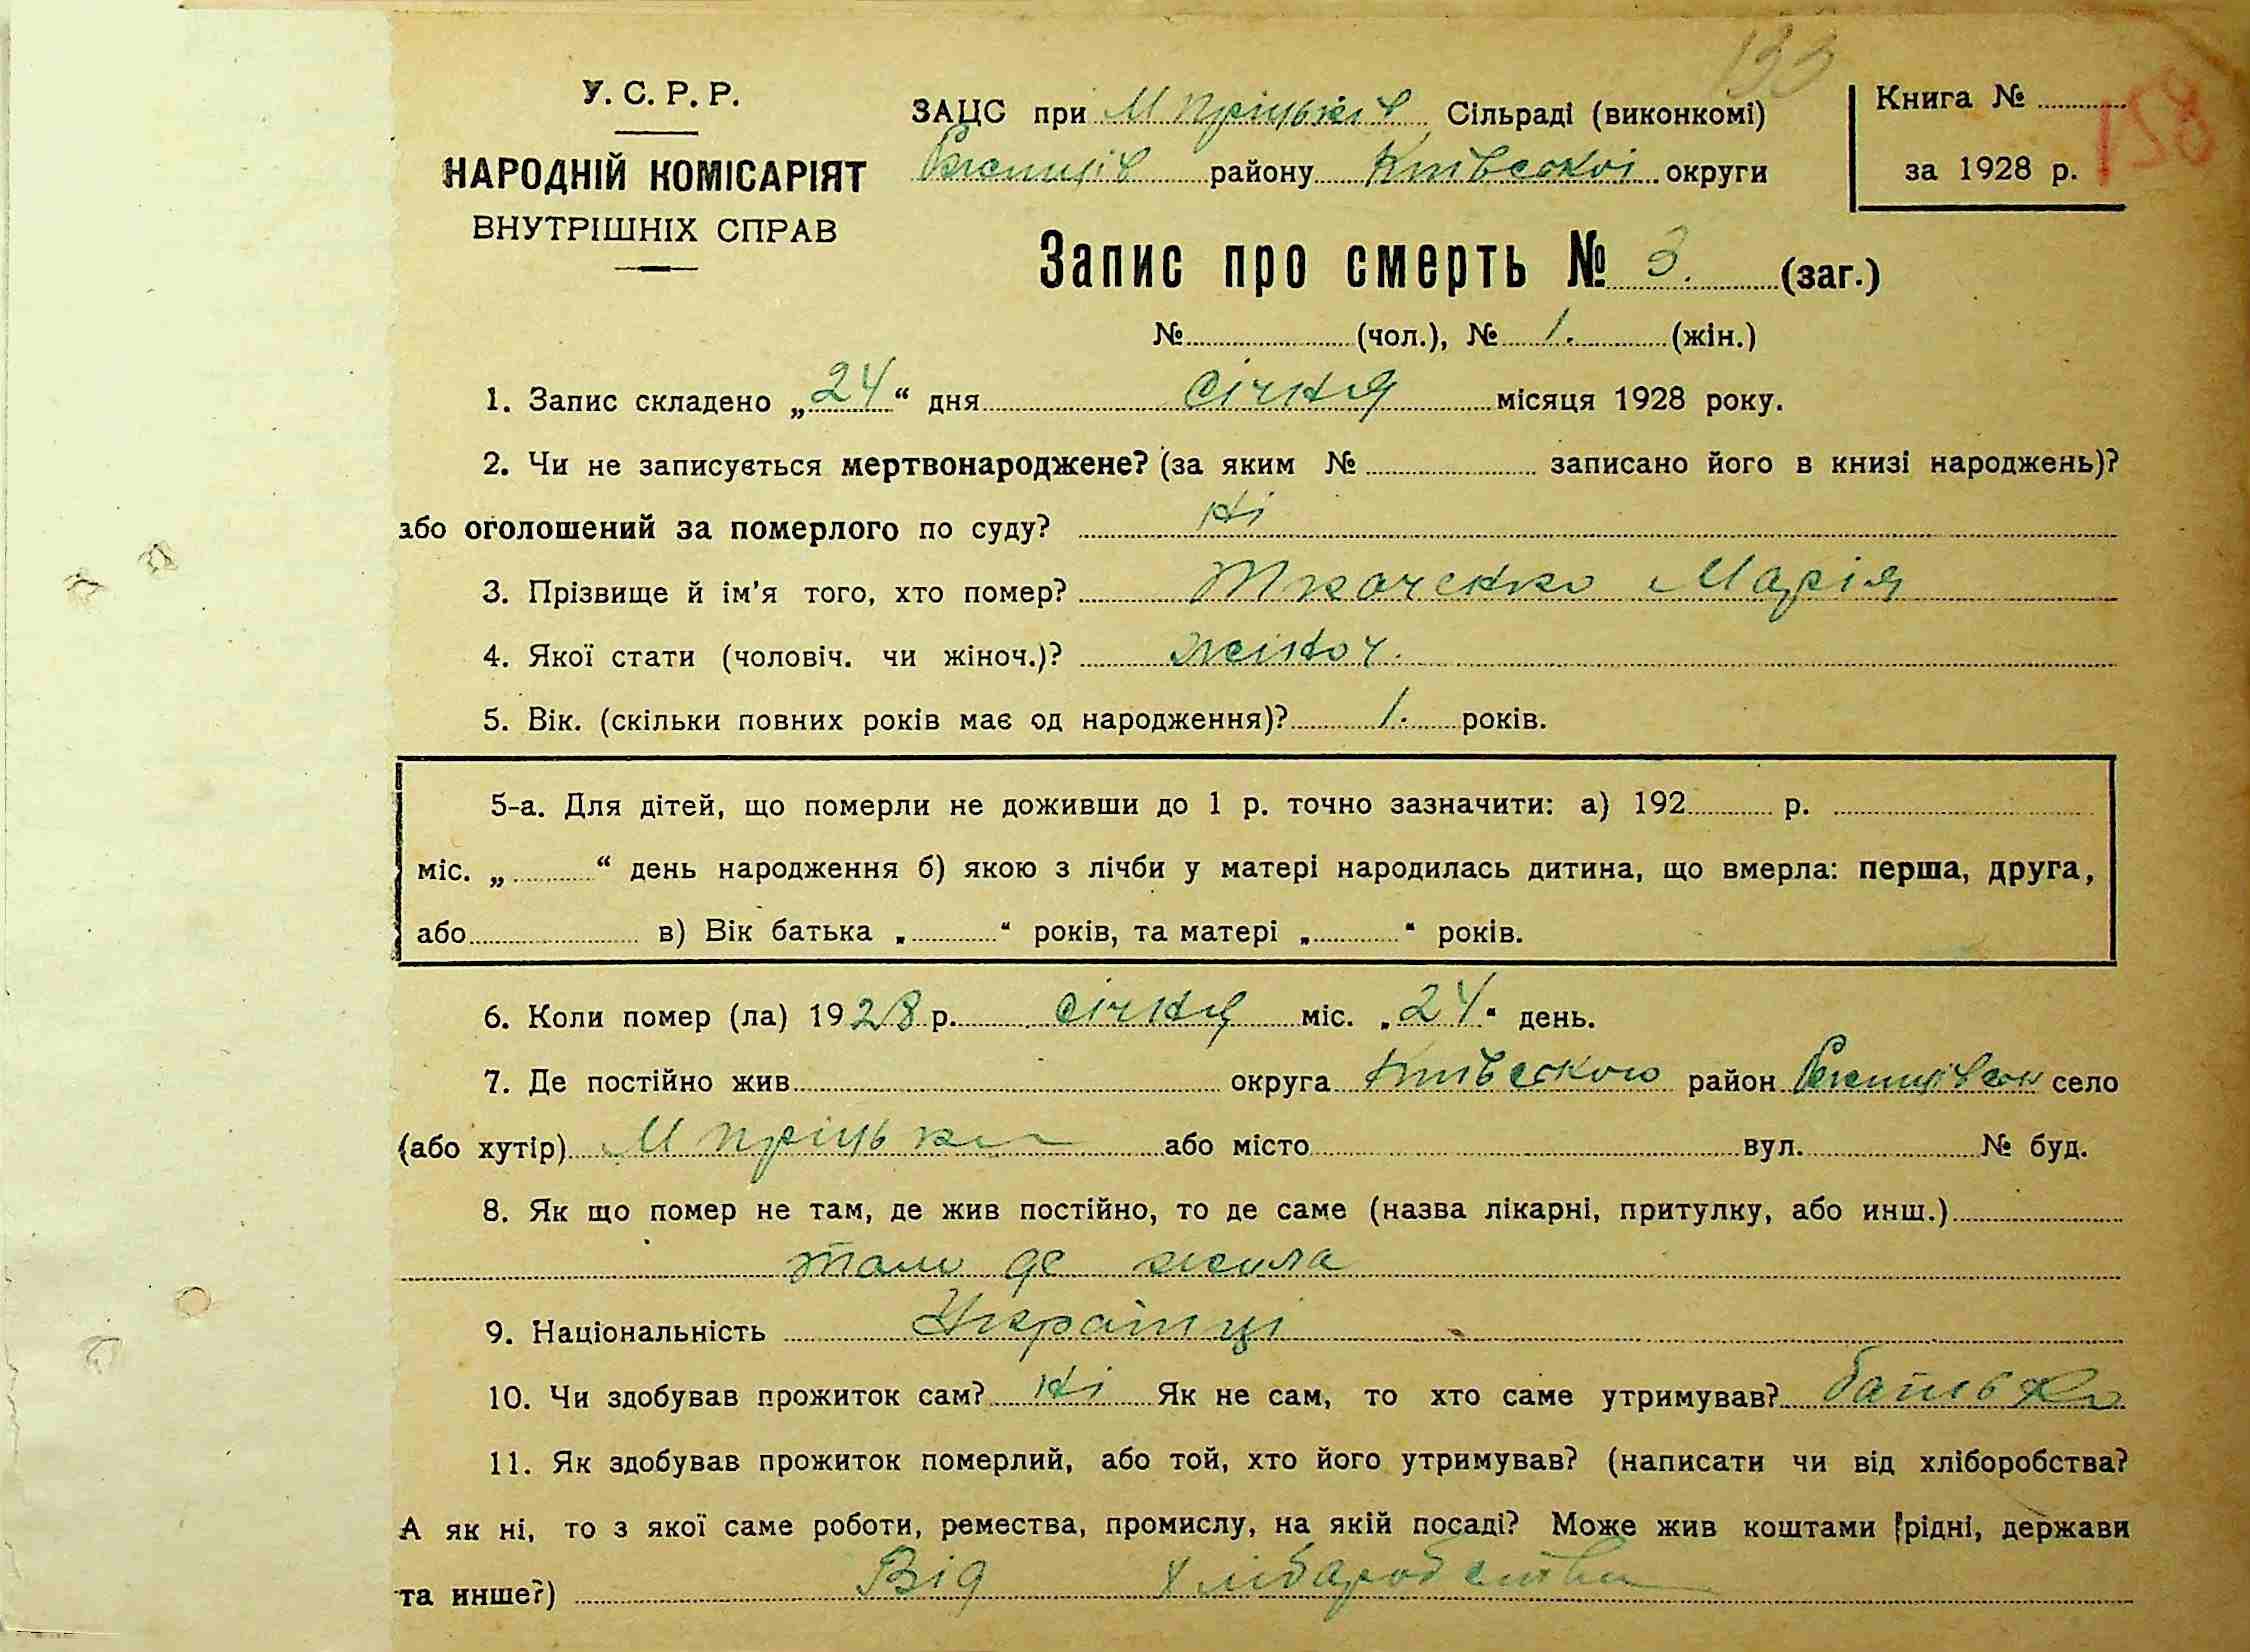 133
У. С. Р. Р.
НАРОДНІЙ КОМІСАРІЯТ
ВНУТРІШНІХ СПРАВ
ЗАЦС при М Пріцьків Сільраді (виконкомі)
Ржищів району Київської округи
Книга № 158
за 1928 р.
Запис про смерть № 3. (заг.)
№ (чол.), № 1. (жін.)
1. Запис складено „24“ дня січня місяця 1928 року.
2. Чи не записується мертвонароджене? (за яким № записано його в книзі народжень)?
або оголошений за померлого по суду? ні
3. Прізвище й ім'я того, хто помер? Ткаченко Марія
4. Якої стати (чоловіч. чи жіноч.)? жіноч.
5. Вік. (скільки повних років має од народження)? 1. років.
5-а. Для дітей, що померли не доживши до 1 р. точно зазначити: а) 192 р.
міс. „ “ день народження б) якою з лічби у матері народилась дитина, що вмерла: перша, друга,
або в) Вік батька „ “ років, та матері „ “ років.
6. Коли помер (ла) 1928 р. січня міс. „24“ день.
7. Де постійно жив округа Київского район Ржищівскі село
(або хутір) М Пріцьки або місто вул. № буд.
8. Як що помер не там, де жив постійно, то де саме (назва лікарні, притулку, або инш.)
тамо де жила
9. Національність Українці
10. Чи здобував прожиток сам? ні Як не сам, то хто саме утримував? батько
11. Як здобував прожиток померлий, або той, хто його утримував? (написати чи від хліборобства?
А як ні, то з якої саме роботи, ремества, промислу, на якій посаді? Може жив коштами рідні, держави
та инше?) Від хлібаробства